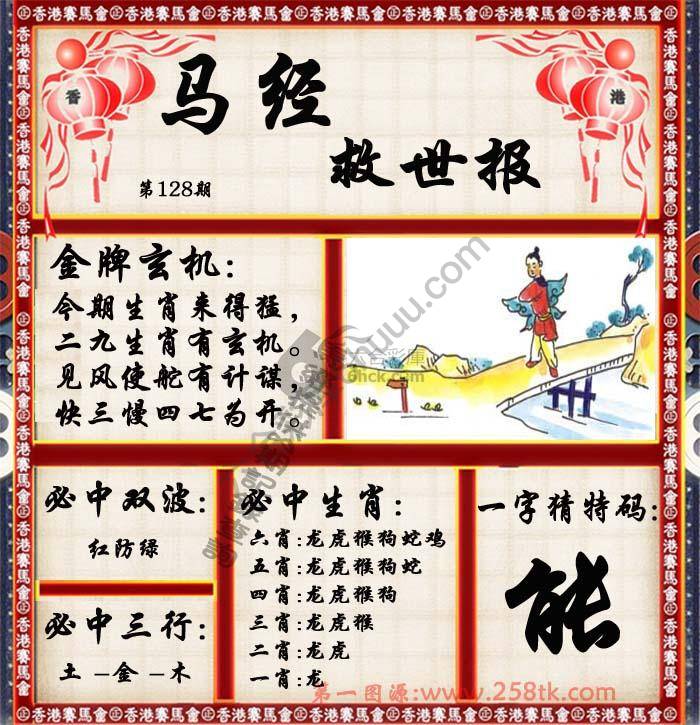 香港賽馬會
香 港
马经
救世报
第128期
金牌玄机:
今期生肖来得猛,
二九生肖有玄机。
见风使舵有计谋,
快三慢四七为开。
必中双波:
红防绿
必中三行:
土-金-木
必中生肖:
六肖:龙虎猴狗蛇鸡
五肖:龙虎猴狗蛇
四肖:龙虎猴狗
三肖:龙虎猴
二肖:龙虎
一肖:龙
一字猜特码:
能
第一图源:www.258tk.com